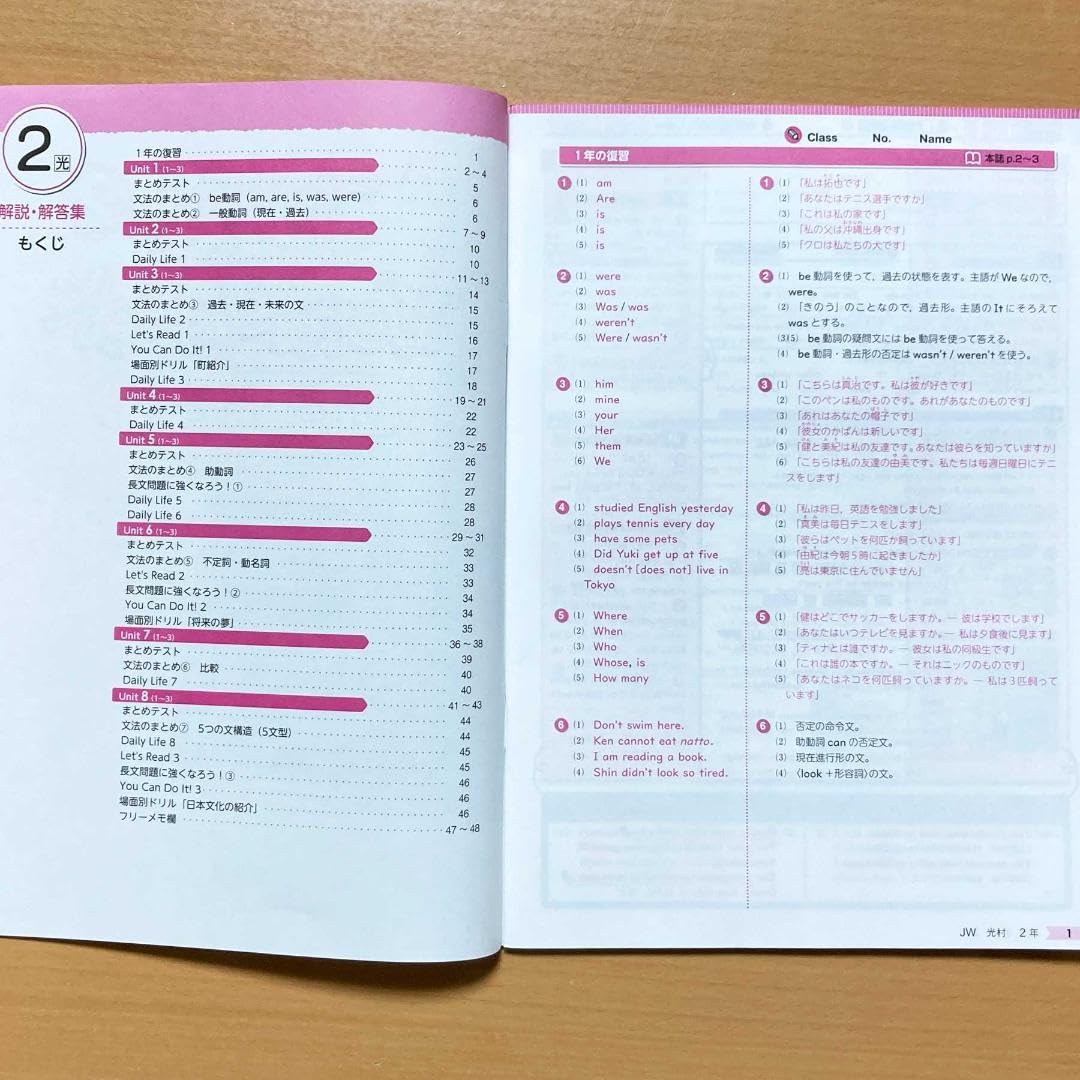 2 光
解説・解答集
もくじ
1年の復習 1
Unit 1 (1~3) 2~4
まとめテスト 5
文法のまとめ① be動詞（am, are, is, was, were） 6
文法のまとめ② 一般動詞（現在・過去） 6
Unit 2 (1~3) 7~9
まとめテスト 10
Daily Life 1 10
Unit 3 (1~3) 11~13
まとめテスト 14
文法のまとめ③ 過去・現在・未来の文 15
Daily Life 2 15
Let's Read 1 16
You Can Do It! 1 17
場面別ドリル「町紹介」 17
Daily Life 3 18
Unit 4 (1~3) 19~21
まとめテスト 22
Daily Life 4 22
Unit 5 (1~3) 23~25
まとめテスト 26
文法のまとめ④ 助動詞 27
長文問題に強くなろう！① 27
Daily Life 5 28
Daily Life 6 28
Unit 6 (1~3) 29~31
まとめテスト 32
文法のまとめ⑤ 不定詞・動名詞 33
Let's Read 2 33
長文問題に強くなろう！② 34
You Can Do It! 2 34
場面別ドリル「将来の夢」 35
Unit 7 (1~3) 36~38
まとめテスト 39
文法のまとめ⑥ 比較 40
Daily Life 7 40
Unit 8 (1~3) 41~43
まとめテスト 44
文法のまとめ⑦ 5つの文構造（5文型） 44
Daily Life 8 45
Let's Read 3 45
長文問題に強くなろう！③ 46
You Can Do It! 3 46
場面別ドリル「日本文化の紹介」 46
フリーメモ欄 47~48
Class No. Name
1年の復習 本誌 p.2~3
1 (1) am
(2) Are
(3) is
(4) is
(5) is
2 (1) were
(2) was
(3) Was / was
(4) weren't
(5) Were / wasn't
3 (1) him
(2) mine
(3) your
(4) Her
(5) them
(6) We
4 (1) studied English yesterday
(2) plays tennis every day
(3) have some pets
(4) Did Yuki get up at five
(5) doesn't [does not] live in
Tokyo
5 (1) Where
(2) When
(3) Who
(4) Whose, is
(5) How many
6 (1) Don't swim here.
(2) Ken cannot eat natto.
(3) I am reading a book.
(4) Shin didn't look so tired.
1 (1) 「私は拓也です」
(2) 「あなたはテニス選手ですか」
(3) 「これは私の家です」
(4) 「私の父は沖縄出身です」
(5) 「クロは私たちの犬です」
2 (1) be 動詞を使って，過去の状態を表す。主語が We なので，
were。
(2) 「きのう」のことなので，過去形。主語の It にそろえて
was とする。
(3)(5) be 動詞の疑問文には be 動詞を使って答える。
(4) be 動詞・過去形の否定は wasn't / weren't を使う。
3 (1) 「こちらは真治です。私は彼が好きです」
(2) 「このペンは私のものです。あれがあなたのものです」
(3) 「あれはあなたの帽子です」
(4) 「彼女のかばんは新しいです」
(5) 「健と美紀は私の友達です。あなたは彼らを知っていますか」
(6) 「こちらは私の友達の由美です。私たちは毎週日曜日にテニ
スをします」
4 (1) 「私は昨日，英語を勉強しました」
(2) 「真美は毎日テニスをします」
(3) 「彼らはペットを何匹か飼っています」
(4) 「由紀は今朝5時に起きましたか」
(5) 「亮は東京に住んでいません」
5 (1) 「健はどこでサッカーをしますか。― 彼は学校でします」
(2) 「あなたはいつテレビを見ますか。― 私は夕食後に見ます」
(3) 「ティナとは誰ですか。― 彼女は私の同級生です」
(4) 「これは誰の本ですか。― それはニックのものです」
(5) 「あなたはネコを何匹飼っていますか。― 私は3匹飼って
います」
6 (1) 否定の命令文。
(2) 助動詞 can の否定文。
(3) 現在進行形の文。
(4) 〈look＋形容詞〉の文。
JW 光村 2年 1